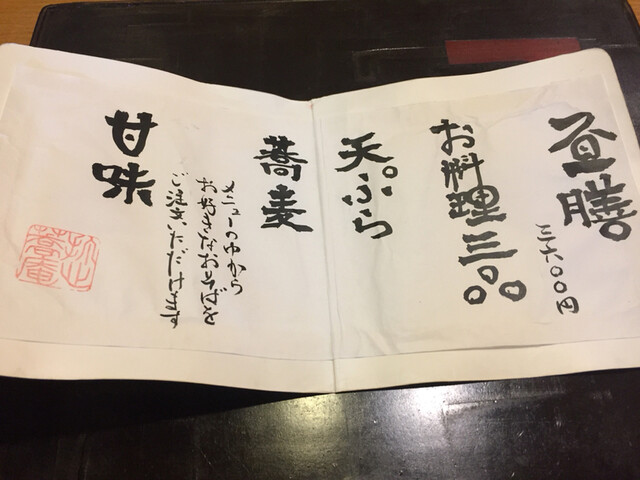 昼膳
三六〇〇円
お料理三〇〇
天ぷら
蕎麦
メニューの中から
お好きなおそばを
ご注文いただけます
甘味